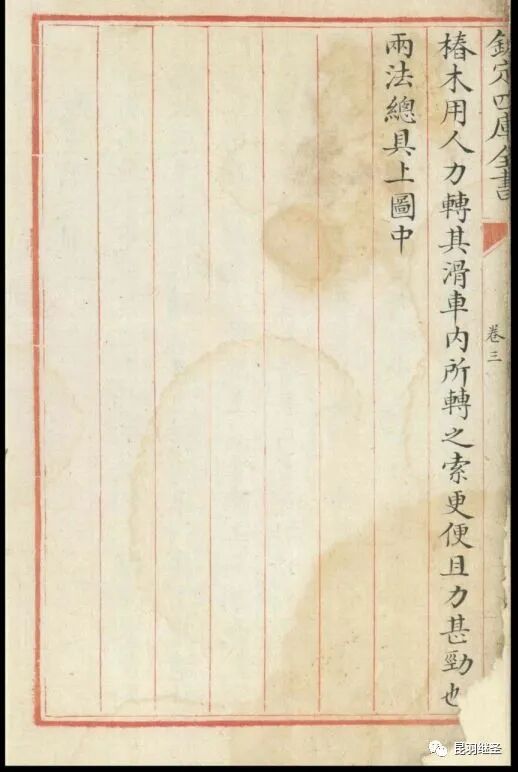 欽定四庫全書
卷三
樁木用人力轉其滑車内所轉之索更便且力甚勁也
兩法總具上圖中
昆羽继圣